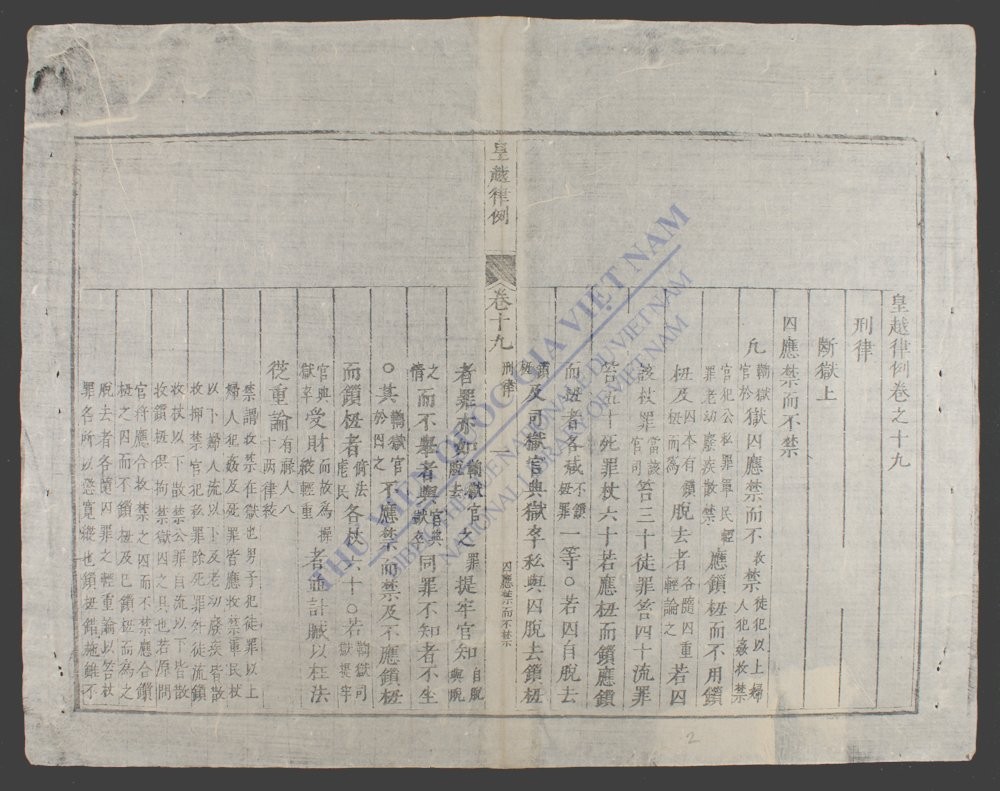 皇越律例卷之十九
刑律
斷獄上
囚應禁而不禁
凡鞫獄官於獄囚應禁而不收禁徒犯以上婦人犯姦收禁
官犯公私罪軍民輕罪老幼廢疾散禁應鎖杻而不用鎖
杻及囚本有鎖杻而爲脫去者各隨囚重輕論之若囚
該杖罪當該官司笞三十徒罪笞四十流罪
笞五十死罪杖六十若應杻而鎖應鎖
而杻者各減不鎖杻罪一等○若囚自脫去
鎖杻及司獄官典獄卒私與囚脫去鎖杻
者罪亦如鞫獄官脫去之罪提牢官知自脫與脫
之情而不舉者與官典獄卒同罪不知者不坐
○其鞫獄官於囚之不應禁而禁及不應鎖杻
而鎖杻者倚法虐民各杖六十○若鞫獄司獄提牢
官典獄卒受財而故爲操縱輕重者並計贓以枉法
從重論有祿人八十兩律絞
禁謂收禁在獄也男子犯徒罪以上
婦人犯姦及死罪者應收禁軍民杖
以下婦人流以下及老幼廢疾皆散
收押禁官犯私罪除死罪外徒流鎖
收杖以下散禁公罪自流以下皆散
收鎖杻俱拘禁獄囚之具也若原問
官將應合收禁之囚而不禁應合鎖
杻之囚而不鎖杻及已鎖杻而爲之
脫去者各隨囚罪之輕重論以笞杖
罪各所以懲寬縱也鎖杻錯施雖不
皇越律例
卷十九
刑律
一
囚應禁而不禁
THƯ VIỆN QUỐC GIA VIỆT NAM
BIBLIOTHEQUE NATIONALE DU VIETNAM
NATIONAL LIBRARY OF VIETNAM
2